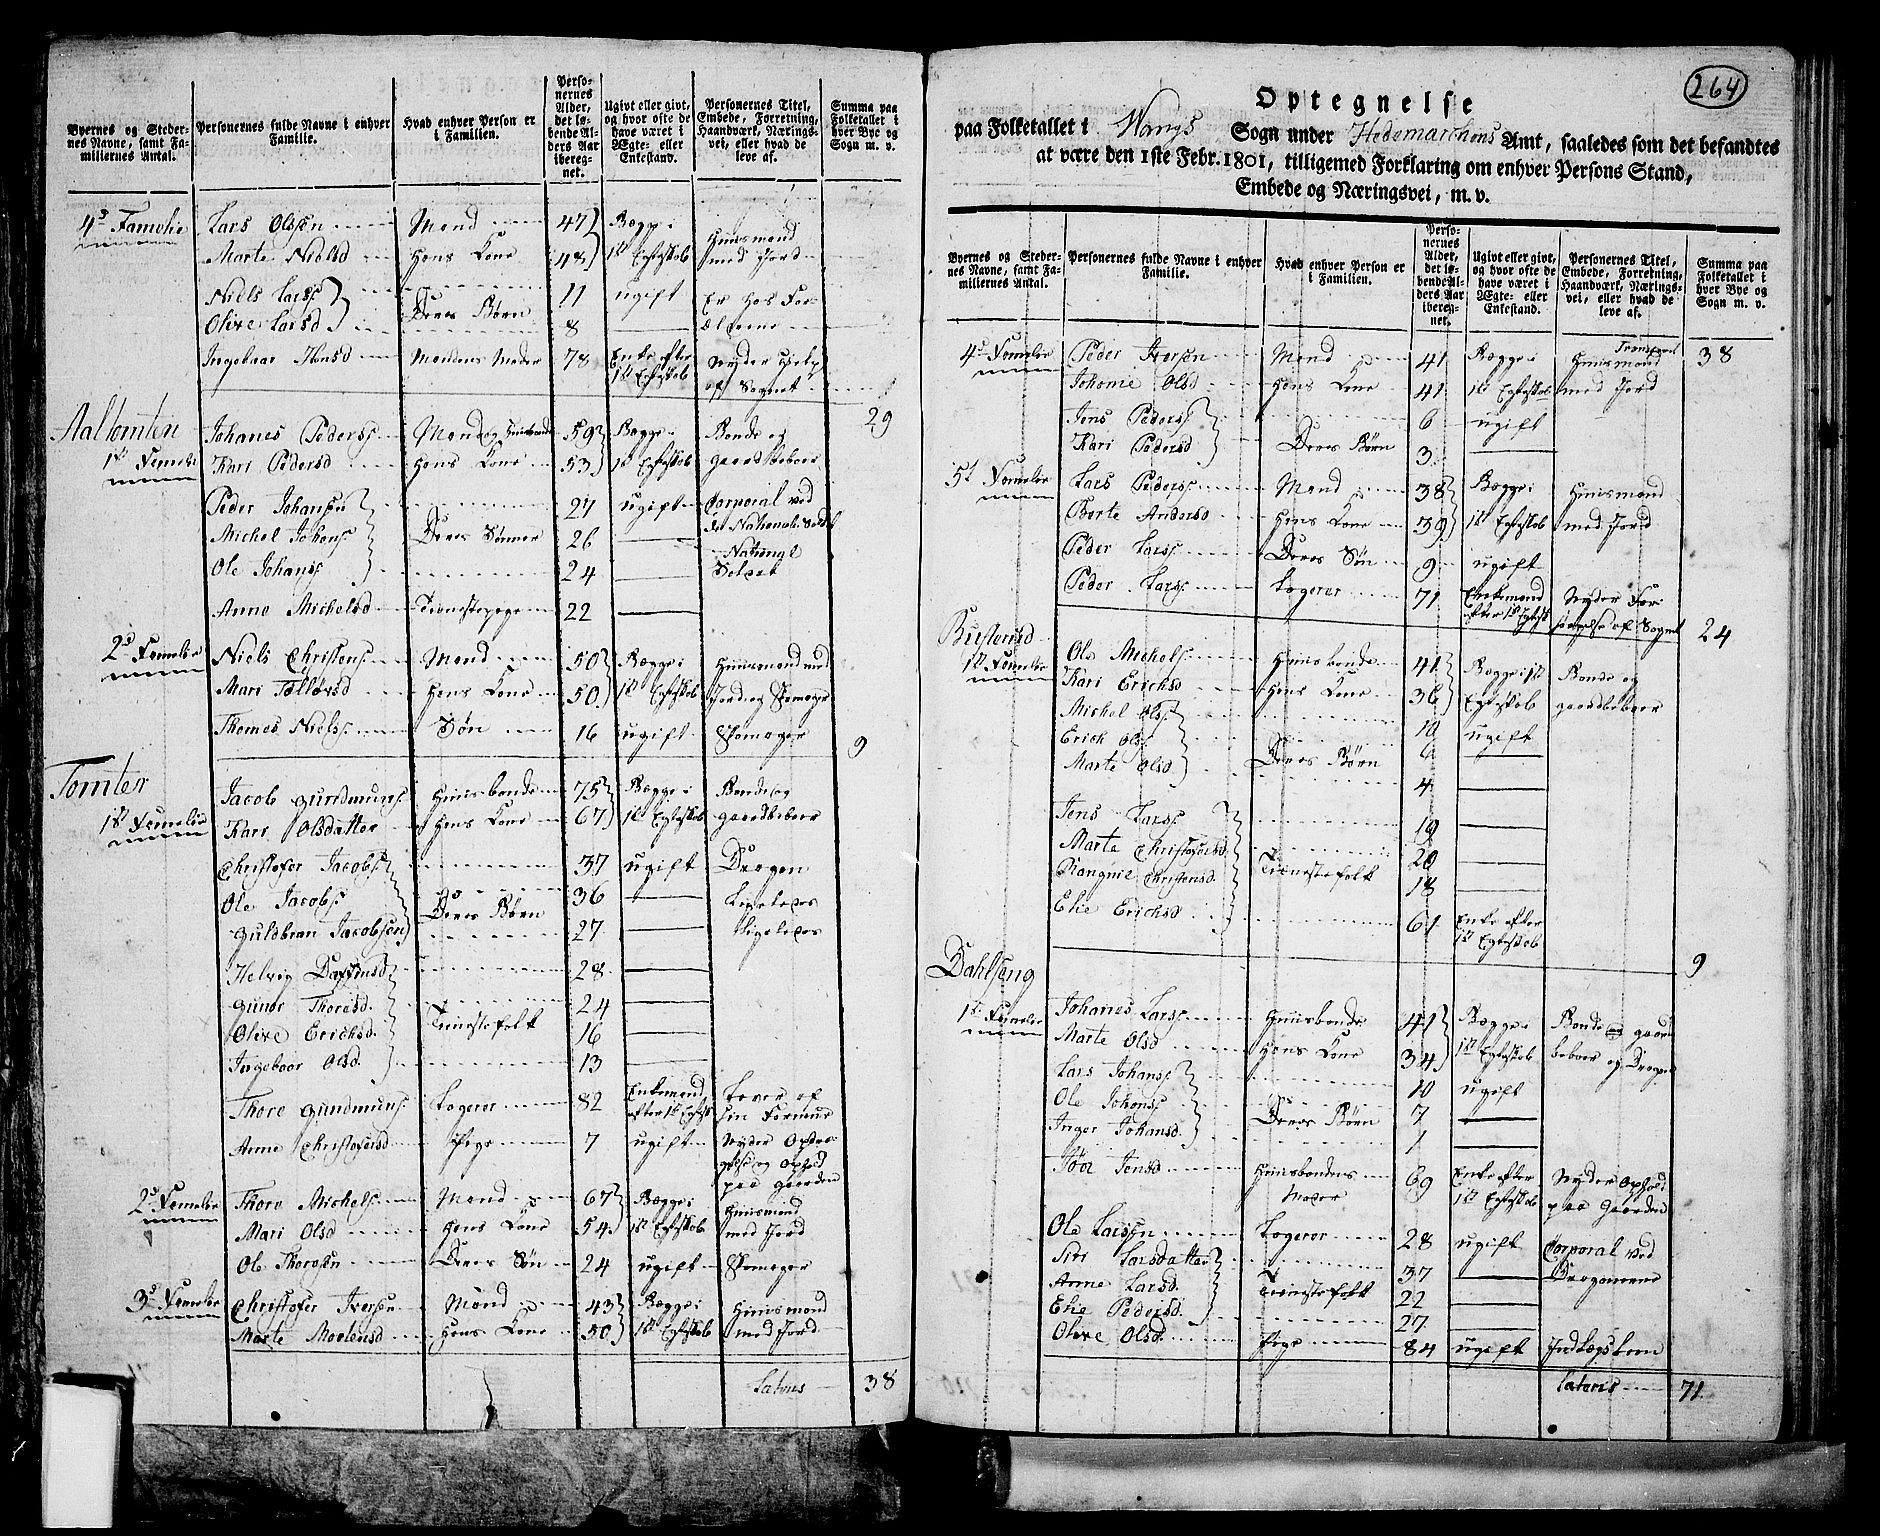 Byernes og Steder- nes Navne, samt Fa- miliernes Antal. | Personernes fulde Navne i enhver Familie. | Hvad enhver Person er i Familien. | Perso- nernes Alder, det lø- bende Al- ders Aar ibereg- net. | Ugivt eller givt, og hvor ofte de have været i Ægte- eller Enkestand. | Personernes Titel, Embede, Forretning, Haandværk, Nærings- vei, eller hvad de leve af. | Summa paa Folketallet i hver Bye og Sogn m. v.
4de Famelie Lars Olssen Mand 47 Begge i Huusmand
Marte Nielsd Hans Kone 48 1st Egteskab med Jord
Niels Larss 11 ugift Er hos For-
Olive Larsd Deres Børn 8 ældrene
Ingeboar Hansd Mandens Moder 78 Enke efter 1st Egteskab Nyder Hielp af Sognet
29
Aaltomten
1st Famelie Johanes Peders Mand og Huusbonde 59 Begge i Bonde og
Kari Pedersd Hans Kone 53 1st Egteskab Gaardbeboer
Peder Johansen 27 ugift Corporal ved
Michel Johans Deres Sønner 26 National
Ole Johans 24 Soldat
Anne Michelsd Tienestepige 22
2de Famelie Niels Christens Mand 50 Begge i Huusmand med
Mari Tolløvsd Hans Kone 50 1st Egteskab Jord og Skomager
Thomas Nielss Søn 16 ugift Skomager
9
Tomter
1st Famelie Jacob Gundmuns Huusbonde 75 Begge i Bonde og
Kari Olsdatter Hans Kone 67 1st Egteskab Gaardbeboer
Christofer Jacobs 37 ugift Dragon
Ole Jacobs Deres Børn 36 Ligeledes
Guldbran Jacobsen 27 Ligeledes
Helvig 28
Guner Thoresd. 24
Olive Erichsd. Tienestefolk 16
Ingeboar Olsd. 13
Thore Gundmuns Logerer 82 Enkemand efter 1st Egtesk Lever af sin Formue
Anne Christofersd Pige 7 ugift Nyder Opdra-
gelse og Ophold
paa Gaarden
2de Famelie Thore Michels Mand 67 Begge i Huusmand
Mari Olsd Hans Kone 54 1st Egteskab med Jord
Ole Thoresen Deres Søn 24 ugift Skomager
3de Famelie Christofer Iversen Mand 43 Begge i Huusmand
Marte Hans Kone 50 1st Egteskab med Jord
Lateris 38
264
Optegnelse
paa Folketallet i Wangs Sogn under Hedemarchens Amt, saaledes som det befandtes
at være den 1ste Febr. 1801, tilligemed Forklaring om enhver Persons Stand,
Embede og Næringsvei, m. v.
Byernes og Steder- nes Navne, samt Fa- miliernes Antal. | Personernes fulde Navne i enhver Familie. | Hvad enhver Person er i Familien. | Perso- nernes Alder, det lø- bende Al- ders Aar ibereg- net. | Ugivt eller givt, og hvor ofte de have været i Ægte- eller Enkestand. | Personernes Titel, Embede, Forretning, Haandværk, Nærings- vei, eller hvad de leve af. | Summa paa Folketallet i hver Bye og Sogn m. v.
Transport 38
4de Famelie Peder Iversen Mand 41 Begge i Huusmand
Johanne Olsd Hans Kone 41 1st Egteskab med Jord
Jens Peders 6 ugift
Kari Pedersd Deres Børn 3
5te Famelie Lars Peders Mand 38 Begge i Huusmand
Berte Andersd Hans Kone 39 1st Egteskab med Jord
Peder Larss Deres Søn 9 ugift
Peder Larss Logerer 71 Enkemand efter 1st Egtesk Nyder For-
sørgelse af Sognet 24
1st Famelie Ole Michels Huusbonde 41 Begge i 1st Bonde og
Kari Erichsd Hans Kone 36 Egteskab Gaardbeboer
Michel Ols 10 ugift
Erich Ols Deres Børn 6
Marte Olsd 4
Jens Larss 19
Marte Christofersd 20
Rangnil Christensd. Tienestefolk 18
Elie Erichsd 61 Enke efter 1st Egteskab
9
Dahlseng
1st Famelie Johanes Larss Huusbonde 41 Begge i Bonde og Gaard-
Marte Olsd Hans Kone 34 1st Egteskab beboer og Dragon
Lars Johans 10 ugift
Ole Johans Deres Børn 7
Inger Johansd. 1
Jensd Huusbondens Moder 69 Enke efter 1st Egteskab Nyder Ophold paa Gaarden
Ole Larssen Logerer 28 ugift Corporal ved
Siri Larsdatter 37 Dragonerne
Anne Larsd. Tienestefolk 22
Elie Pedersd. 27
Olive Olsd. Pige 84 ugift Indlægs
Lateris 71